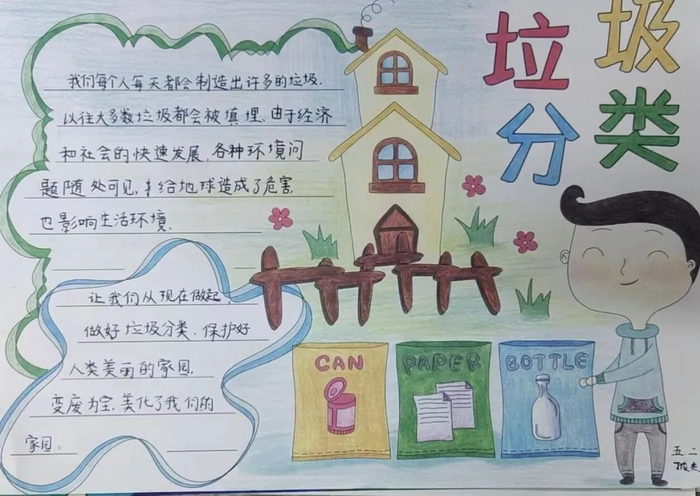 垃圾
分类
我们每个人每天都会制造出许多的垃圾.
以往大多数垃圾都会被填埋,由于经济
和社会的快速发展,各种环境问
题随处可见,给地球造成了危害
也影响生活环境.
让我们从现在做起,
做好垃圾分类、保护好
人类美丽的家园.
变废为宝,美化了我们的
家园.
CAN
PAPER
BOTTLE
五二